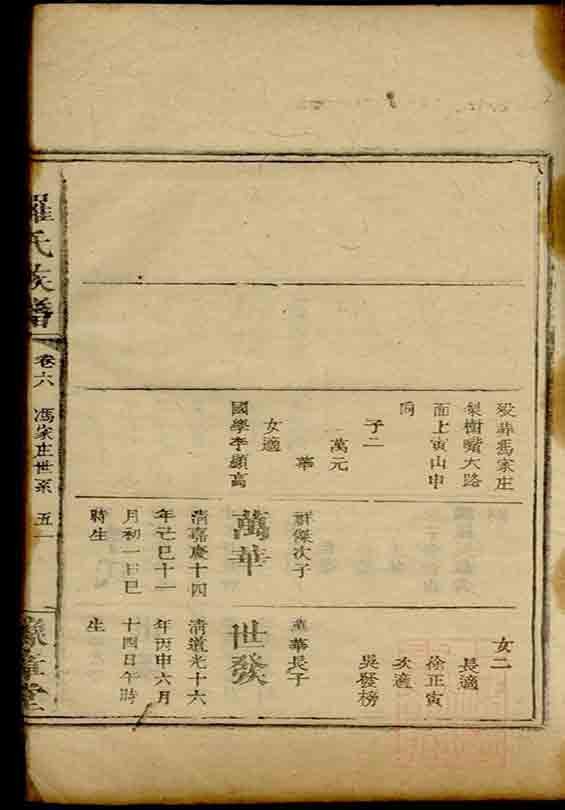 歿葬馮家庄
梨樹嘴大路
面上寅山申
向
子二
萬元
華
女適
國學李顯高
女二
長適
徐正寅
次適
吳發榜
群傑次子
萬華
清嘉慶十四
年己巳十一
月初一日巳
時生
萬華長子
世發
清道光十六
年丙申六月
十四日午時
生
羅氏族譜
卷六
馮家庄世系
五一
豫章堂